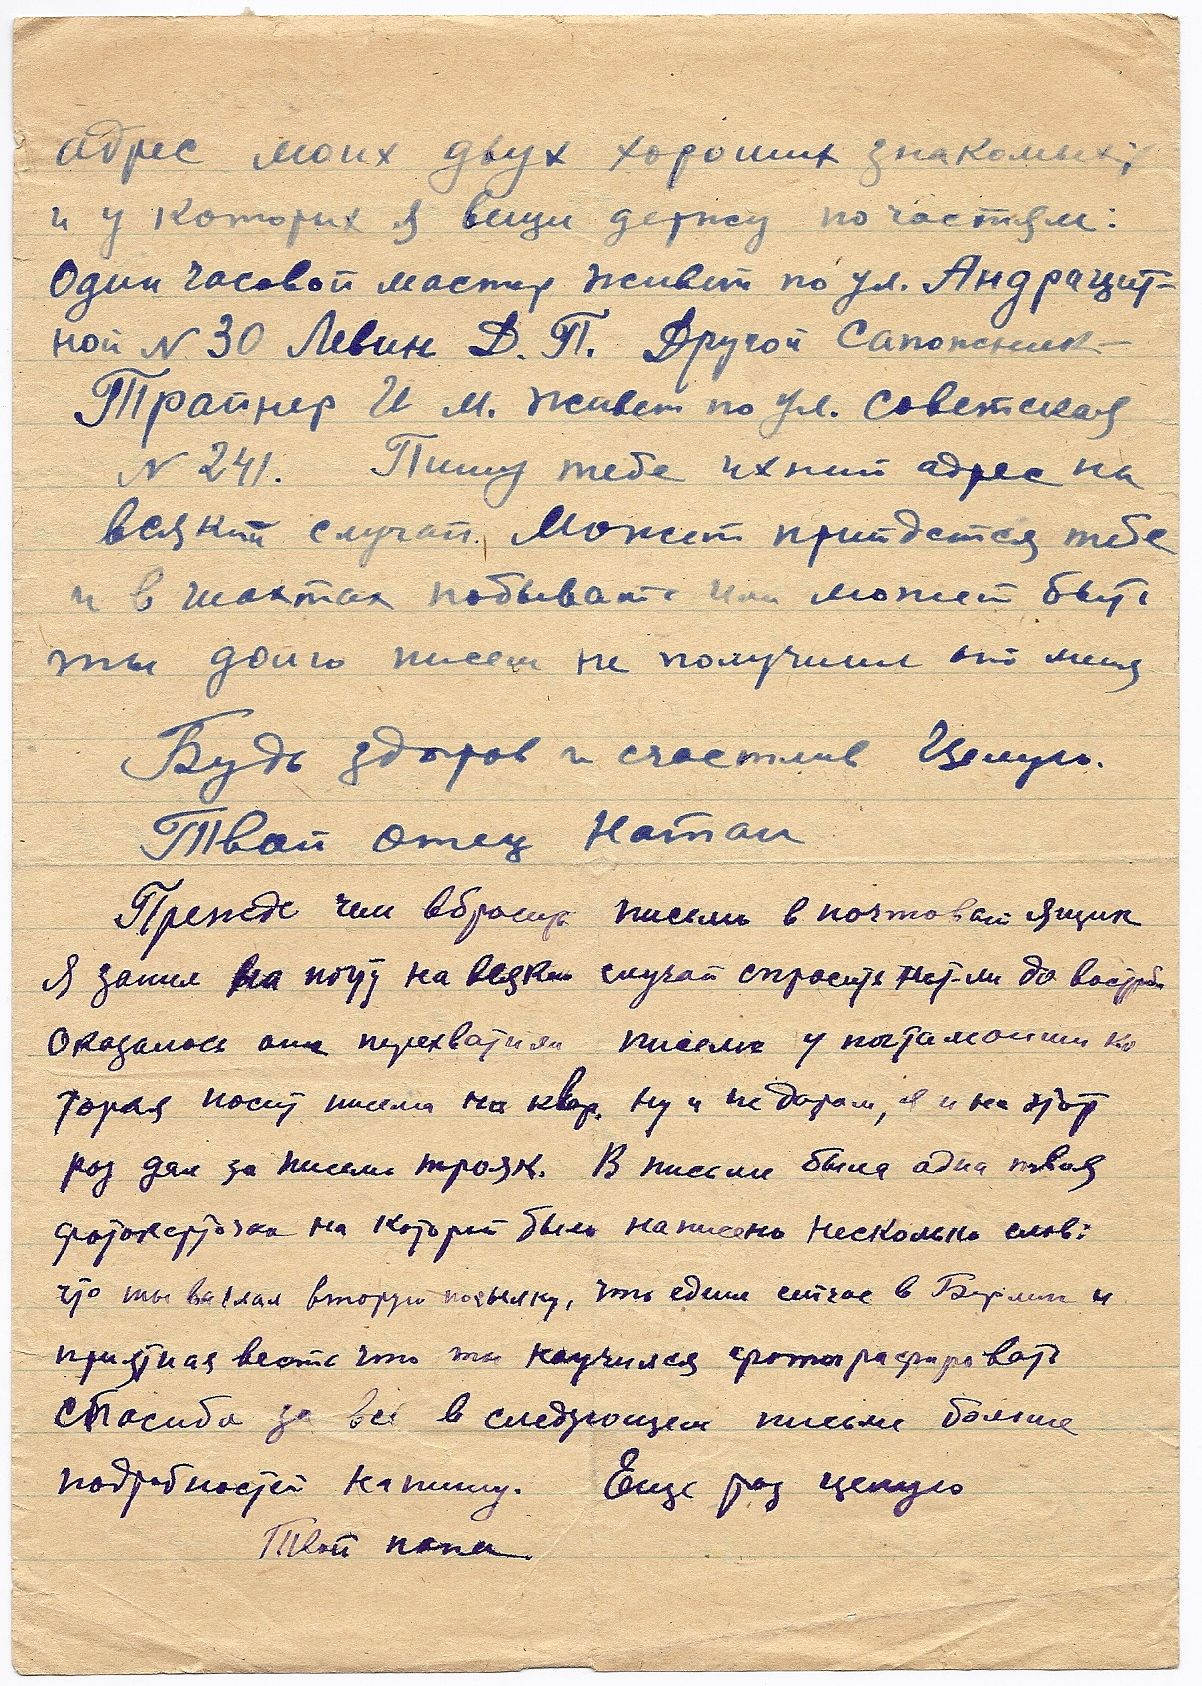 адрес моих двух хороших знакомых;
и у которих я вещи держу по частям:
Один часовой мастер живет по ул. Андрацит-
ной N 30 Левин Д. П. Другой Сапожник-
Трайнер И М. живет по ул. Советская
N 241. Пишу тебе ихний адрес на
всякий случай. Может прийдется тебе
и в шахтах побывать или может быть
ты долго писем не получиш от меня
Будь здоров и счастлив Целую.
Твой отец Натан
Прежде чем вбросить письмо в почтовый ящик
Я зашел на почту на всякий случай спросить нет-ли до востреб
Оказалось они перехватили письмо у почтальонши ко
торая носит письма на квар. ну и не даром, я и на этот
раз дал за письмо трояк. В письме была одна твоя
фотокарточка на которой было написано несколько слов:
что ты выслал вторую посылку, что едеш сейчас в Берлин и
приятная весть что ты научился фотографировать
Спасибо за всё в следующем письме больше
подробностей напишу. Еще раз целую
Твой папа.